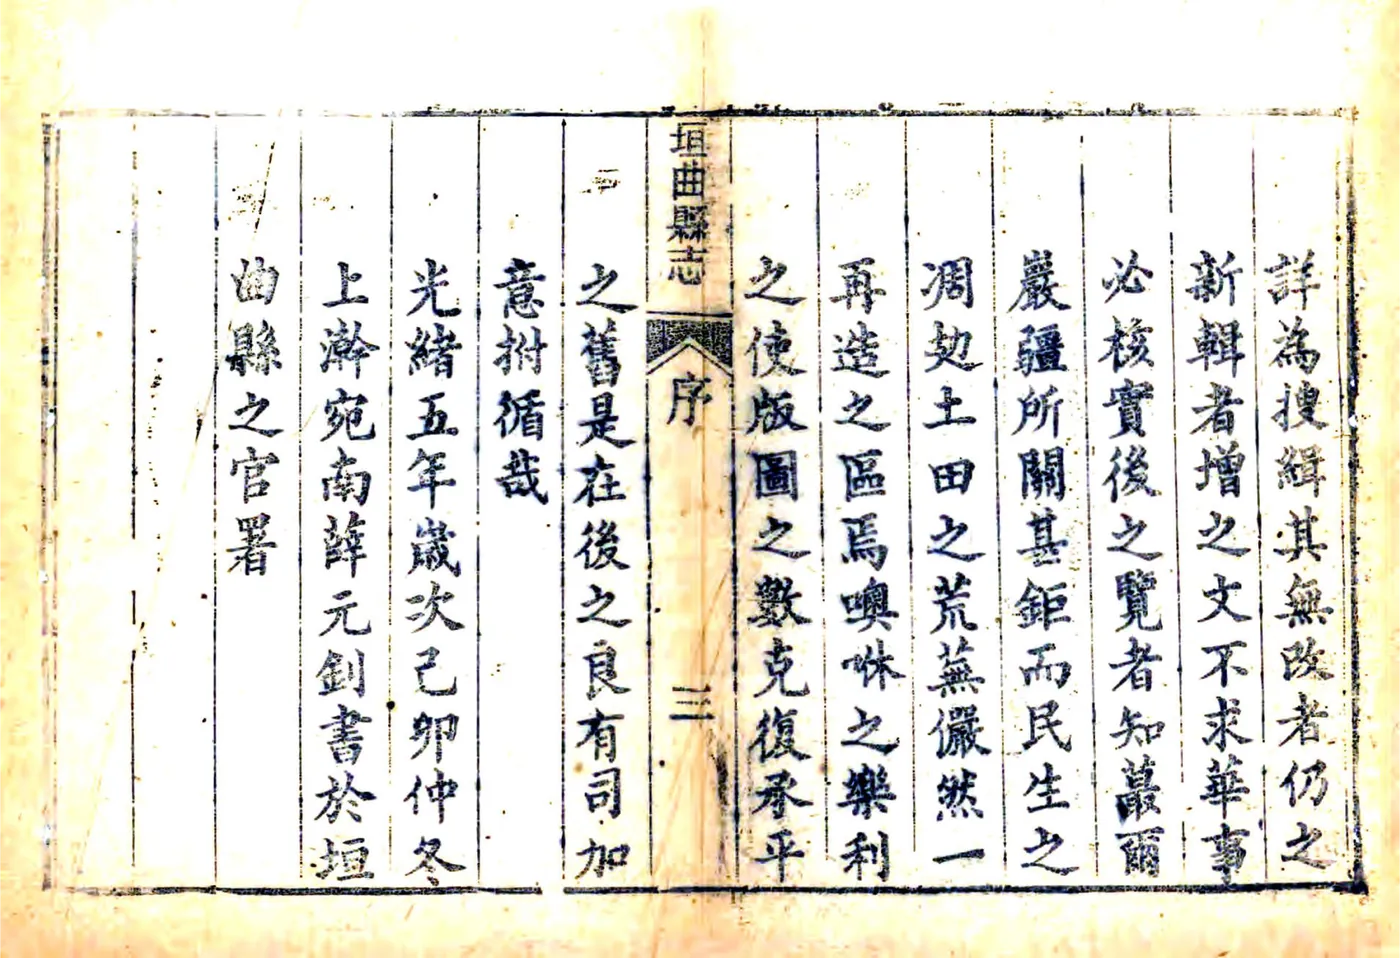 詳為搜緝其無改者仍之
新輯者增之文不求華事
必核實後之覽者知蕞爾
嚴疆所關甚鉅而民生之
凋攰土田之荒蕪儼然一
再造之區焉噢咻之樂利
之使版圖之數克復承平
垣曲縣志
序
三
之舊是在後之良有司加
意拊循哉
光緒五年歲次己卯仲冬
上澣宛南薛元釗書於垣
曲縣之官署